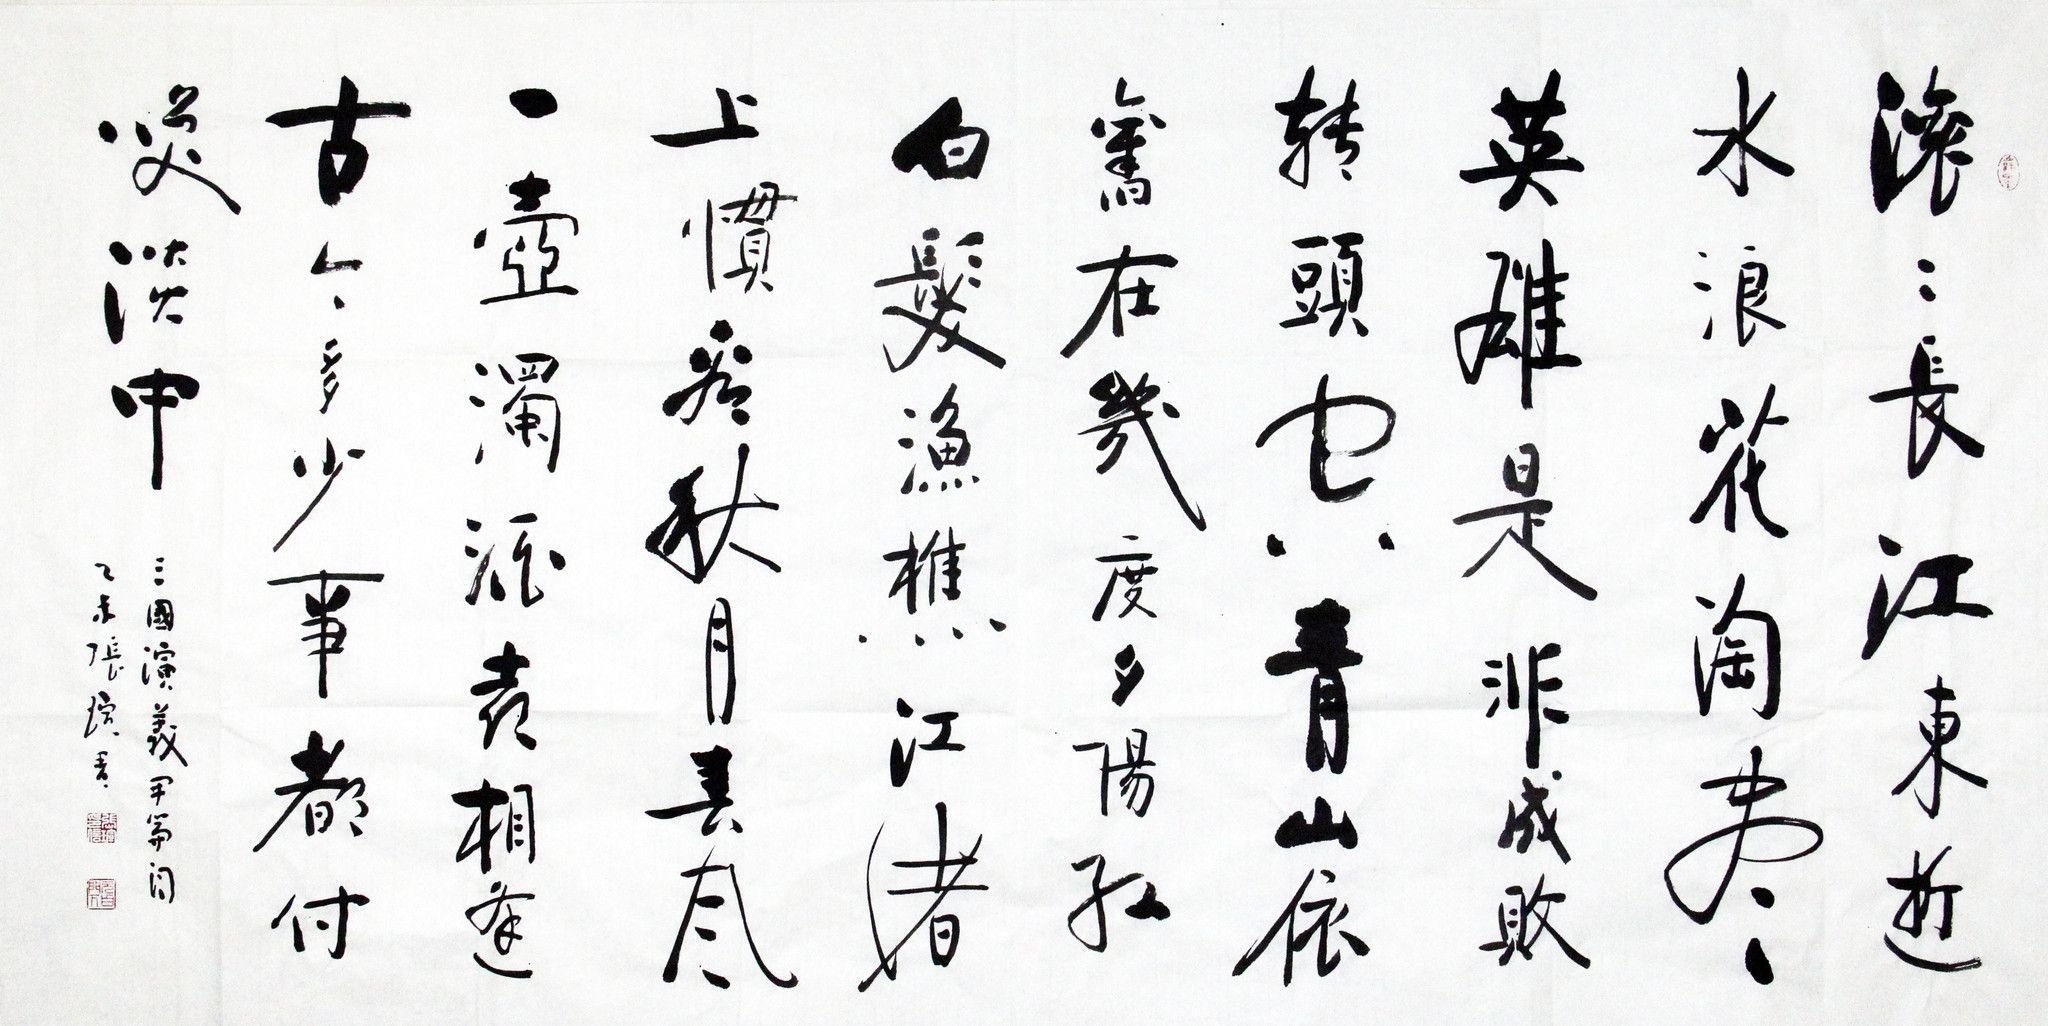 滚〻長江東逝
水浪花淘盡
英雄是非成敗
转頭空青山依
舊在幾度夕陽紅
白髮漁樵江渚
上慣看秋月春風
一壺濁酒喜相逢
古今多少事都付
笑談中
三國演義開篇詞
乙未張璸書